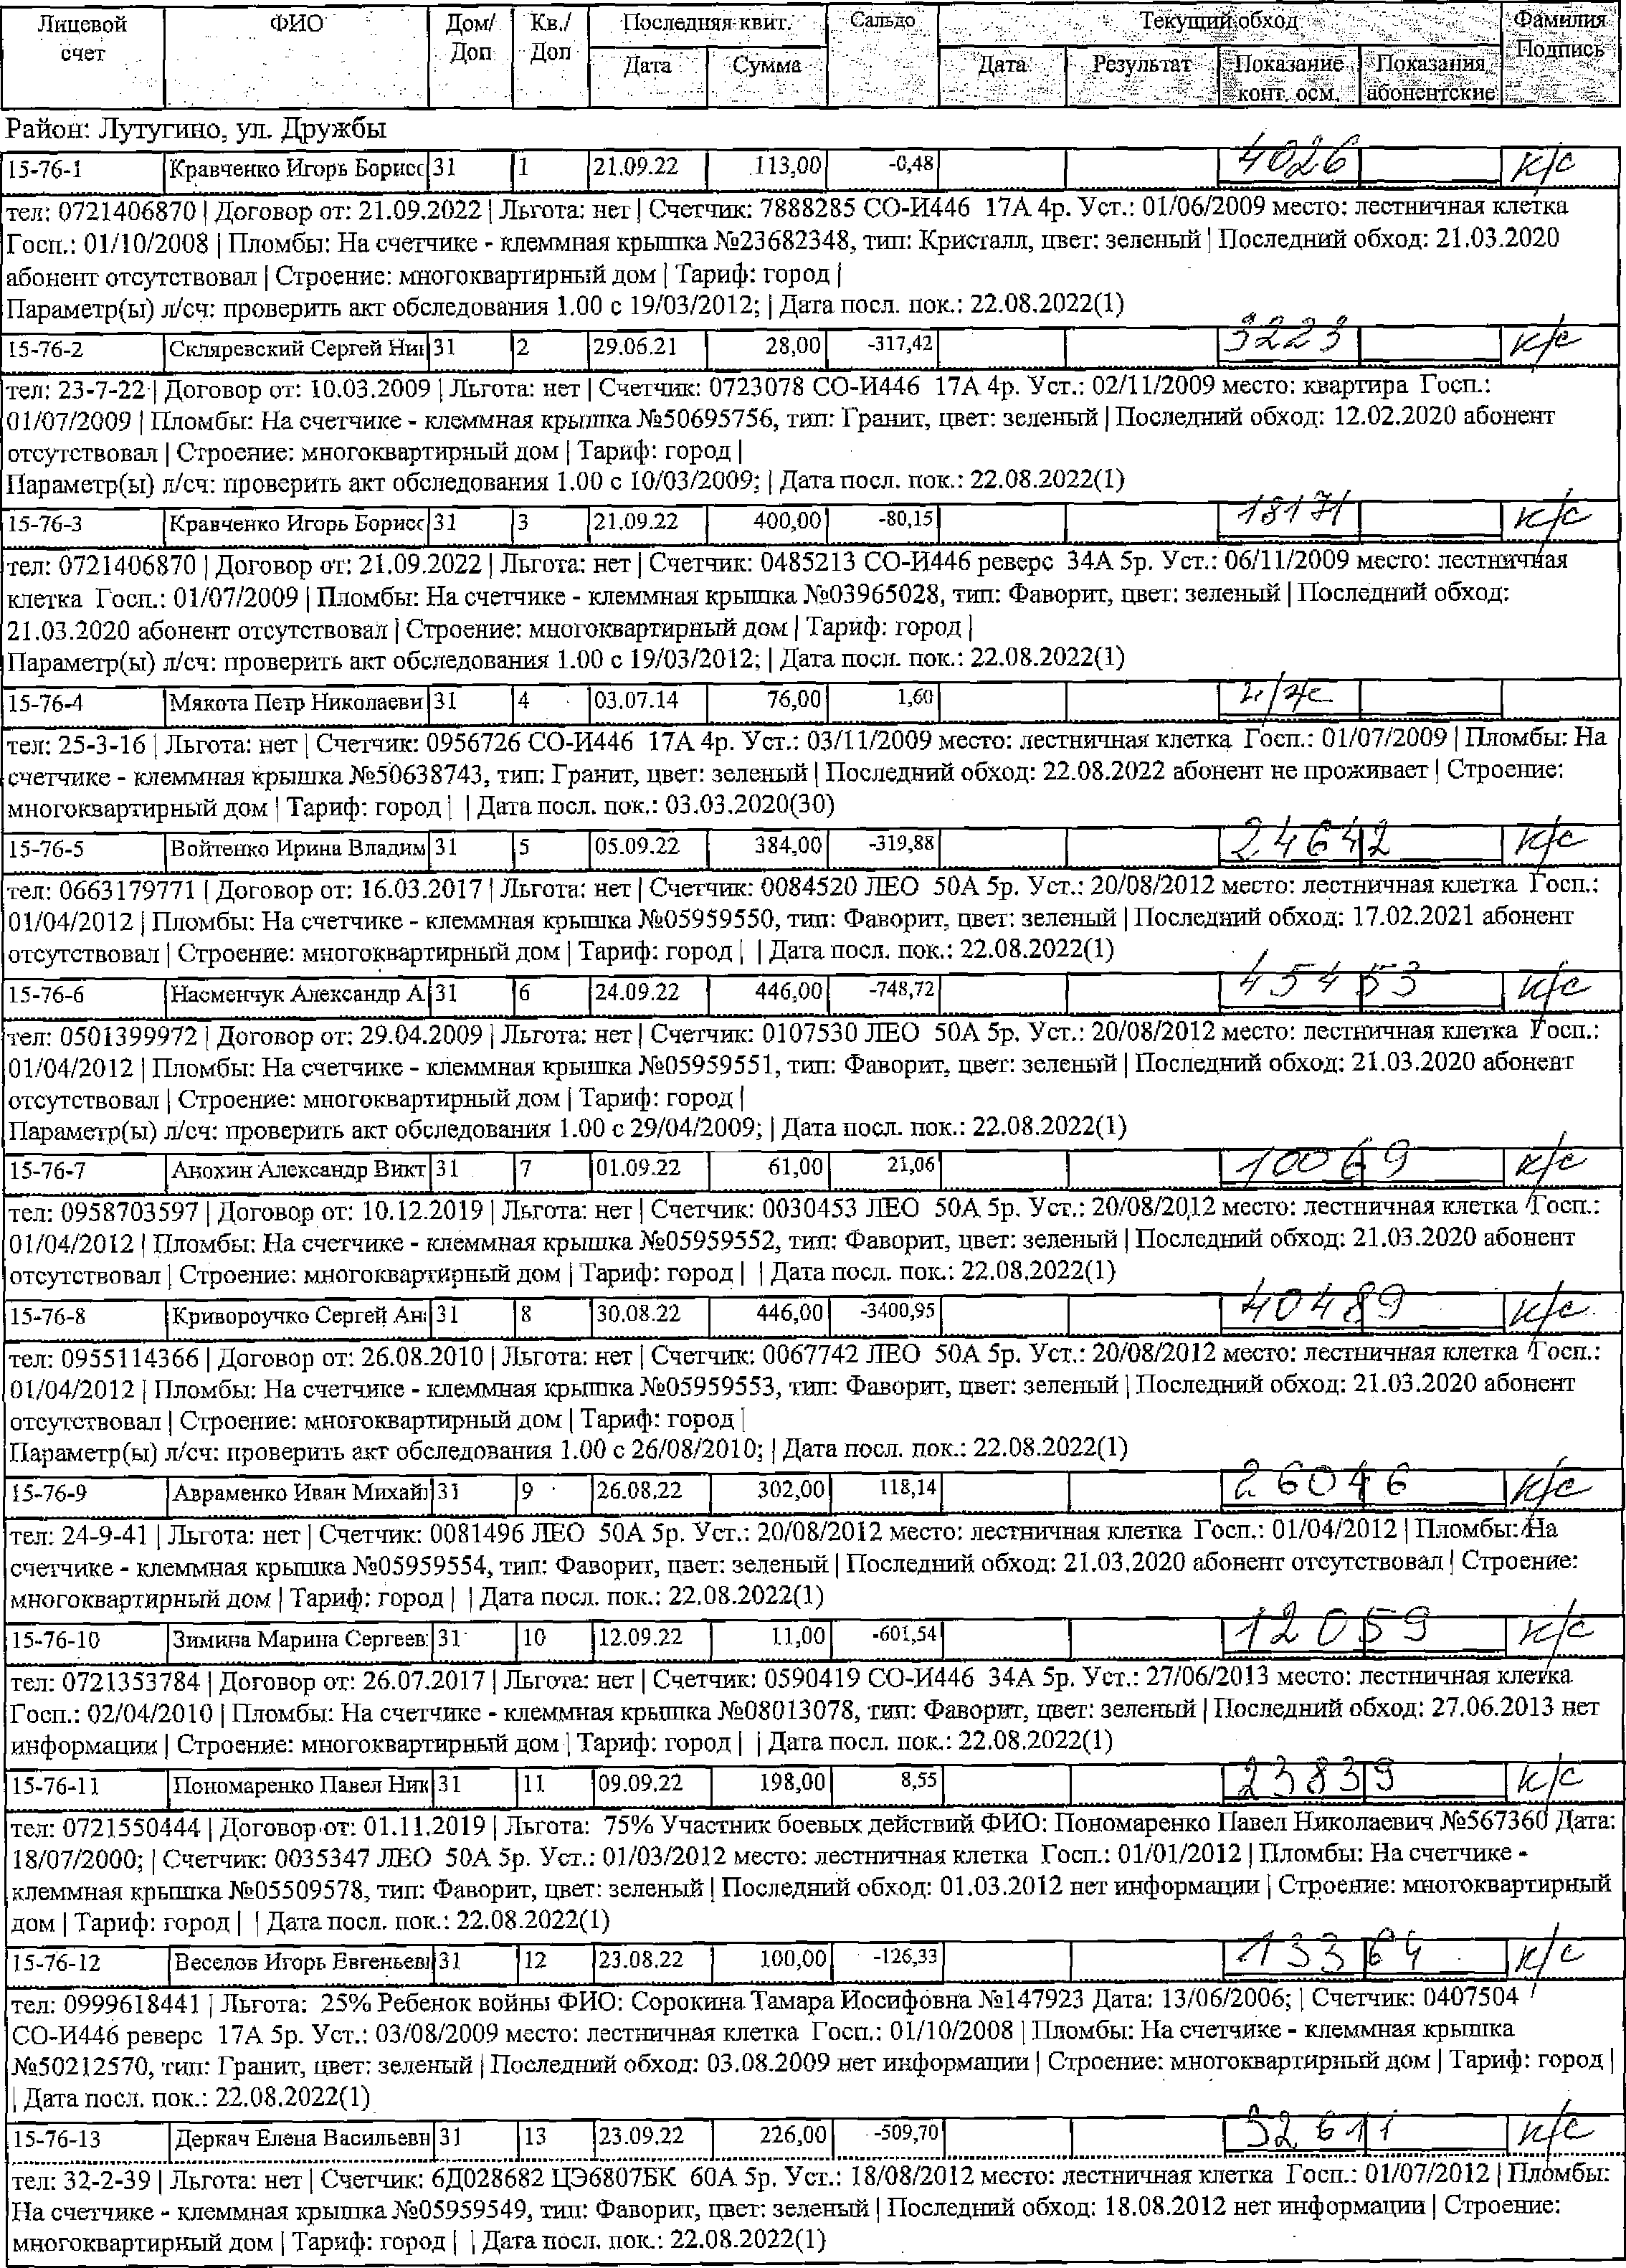 Лицевой счет ФИО Дом/Доп Кв./Доп Последняя квит. Сальдо Текущий обход Фамилия Подпись
Дата Сумма Дата Результат Показание конт. осм. Показания абонентские
Район: Лутугино, ул. Дружбы
15-76-1 Кравченко Игорь Борисс 31 1 21.09.22 113,00 -0,48 4026 к/с
тел: 0721406870 | Договор от: 21.09.2022 | Льгота: нет | Счетчик: 7888285 СО-И446 17А 4р. Уст.: 01/06/2009 место: лестничная клетка
Госп.: 01/10/2008 | Пломбы: На счетчике - клеммная крышка №23682348, тип: Кристалл, цвет: зеленый | Последний обход: 21.03.2020
абонент отсутствовал | Строение: многоквартирный дом | Тариф: город |
Параметр(ы) л/сч: проверить акт обследования 1.00 с 19/03/2012; | Дата посл. пок.: 22.08.2022(1)
15-76-2 Скляревский Сергей Ни 31 2 29.06.21 28,00 -317,42 3223 к/с
тел: 23-7-22 | Договор от: 10.03.2009 | Льгота: нет | Счетчик: 0723078 СО-И446 17А 4р. Уст.: 02/11/2009 место: квартира Госп.:
01/07/2009 | Пломбы: На счетчике - клеммная крышка №50695756, тип: Гранит, цвет: зеленый | Последний обход: 12.02.2020 абонент
отсутствовал | Строение: многоквартирный дом | Тариф: город |
Параметр(ы) л/сч: проверить акт обследования 1.00 с 10/03/2009; | Дата посл. пок.: 22.08.2022(1)
15-76-3 Кравченко Игорь Борисс 31 3 21.09.22 400,00 -80,15 18171 к/с
тел: 0721406870 | Договор от: 21.09.2022 | Льгота: нет | Счетчик: 0485213 СО-И446 реверс 34А 5р. Уст.: 06/11/2009 место: лестничная
клетка Госп.: 01/07/2009 | Пломбы: На счетчике - клеммная крышка №03965028, тип: Фаворит, цвет: зеленый | Последний обход:
21.03.2020 абонент отсутствовал | Строение: многоквартирный дом | Тариф: город |
Параметр(ы) л/сч: проверить акт обследования 1.00 с 19/03/2012; | Дата посл. пок.: 22.08.2022(1)
15-76-4 Мякота Петр Николаеви 31 4 03.07.14 76,00 1,60
тел: 25-3-16 | Льгота: нет | Счетчик: 0956726 СО-И446 17А 4р. Уст.: 03/11/2009 место: лестничная клетка Госп.: 01/07/2009 | Пломбы: На
счетчике - клеммная крышка №50638743, тип: Гранит, цвет: зеленый | Последний обход: 22.08.2022 абонент не проживает | Строение:
многоквартирный дом | Тариф: город | | Дата посл. пок.: 03.03.2020(30)
15-76-5 Войтенко Ирина Владим 31 5 05.09.22 384,00 -319,88 24642 к/с
тел: 0663179771 | Договор от: 16.03.2017 | Льгота: нет | Счетчик: 0084520 ЛЕО 50А 5р. Уст.: 20/08/2012 место: лестничная клетка Госп.:
01/04/2012 | Пломбы: На счетчике - клеммная крышка №05959550, тип: Фаворит, цвет: зеленый | Последний обход: 17.02.2021 абонент
отсутствовал | Строение: многоквартирный дом | Тариф: город | | Дата посл. пок.: 22.08.2022(1)
15-76-6 Насменчук Александр А 31 6 24.09.22 446,00 -748,72 45453 к/с
тел: 0501399972 | Договор от: 29.04.2009 | Льгота: нет | Счетчик: 0107530 ЛЕО 50А 5р. Уст.: 20/08/2012 место: лестничная клетка Госп.:
01/04/2012 | Пломбы: На счетчике - клеммная крышка №05959551, тип: Фаворит, цвет: зеленый | Последний обход: 21.03.2020 абонент
отсутствовал | Строение: многоквартирный дом | Тариф: город |
Параметр(ы) л/сч: проверить акт обследования 1.00 с 29/04/2009; | Дата посл. пок.: 22.08.2022(1)
15-76-7 Анохин Александр Викт 31 7 01.09.22 61,00 21,06 10069 к/с
тел: 0958703597 | Договор от: 10.12.2019 | Льгота: нет | Счетчик: 0030453 ЛЕО 50А 5р. Уст.: 20/08/2012 место: лестничная клетка Госп.:
01/04/2012 | Пломбы: На счетчике - клеммная крышка №05959552, тип: Фаворит, цвет: зеленый | Последний обход: 21.03.2020 абонент
отсутствовал | Строение: многоквартирный дом | Тариф: город | | Дата посл. пок.: 22.08.2022(1)
15-76-8 Кривороучко Сергей Ан 31 8 30.08.22 446,00 -3400,95 40489 к/с
тел: 0955114366 | Договор от: 26.08.2010 | Льгота: нет | Счетчик: 0067742 ЛЕО 50А 5р. Уст.: 20/08/2012 место: лестничная клетка Госп.:
01/04/2012 | Пломбы: На счетчике - клеммная крышка №05959553, тип: Фаворит, цвет: зеленый | Последний обход: 21.03.2020 абонент
отсутствовал | Строение: многоквартирный дом | Тариф: город |
Параметр(ы) л/сч: проверить акт обследования 1.00 с 26/08/2010; | Дата посл. пок.: 22.08.2022(1)
15-76-9 Авраменко Иван Михай 31 9 26.08.22 302,00 118,14 26046 к/с
тел: 24-9-41 | Льгота: нет | Счетчик: 0081496 ЛЕО 50А 5р. Уст.: 20/08/2012 место: лестничная клетка Госп.: 01/04/2012 | Пломбы: На
счетчике - клеммная крышка №05959554, тип: Фаворит, цвет: зеленый | Последний обход: 21.03.2020 абонент отсутствовал | Строение:
многоквартирный дом | Тариф: город | | Дата посл. пок.: 22.08.2022(1)
15-76-10 Зимина Марина Сергеев 31 10 12.09.22 11,00 -601,54 12059 к/с
тел: 0721353784 | Договор от: 26.07.2017 | Льгота: нет | Счетчик: 0590419 СО-И446 34А 5р. Уст.: 27/06/2013 место: лестничная клетка
Госп.: 02/04/2010 | Пломбы: На счетчике - клеммная крышка №08013078, тип: Фаворит, цвет: зеленый | Последний обход: 27.06.2013 нет
информации | Строение: многоквартирный дом | Тариф: город | | Дата посл. пок.: 22.08.2022(1)
15-76-11 Пономаренко Павел Ник 31 11 09.09.22 198,00 8,55 23839 к/с
тел: 0721550444 | Договор от: 01.11.2019 | Льгота: 75% Участник боевых действий ФИО: Пономаренко Павел Николаевич №567360 Дата:
18/07/2000; | Счетчик: 0035347 ЛЕО 50А 5р. Уст.: 01/03/2012 место: лестничная клетка Госп.: 01/01/2012 | Пломбы: На счетчике -
клеммная крышка №05509578, тип: Фаворит, цвет: зеленый | Последний обход: 01.03.2012 нет информации | Строение: многоквартирный
дом | Тариф: город | | Дата посл. пок.: 22.08.2022(1)
15-76-12 Веселов Игорь Евгеньев 31 12 23.08.22 100,00 -126,33 13364 к/с
тел: 0999618441 | Льгота: 25% Ребенок войны ФИО: Сорокина Тамара Иосифовна №147923 Дата: 13/06/2006; | Счетчик: 0407504
СО-И446 реверс 17А 5р. Уст.: 03/08/2009 место: лестничная клетка Госп.: 01/10/2008 | Пломбы: На счетчике - клеммная крышка
№50212570, тип: Гранит, цвет: зеленый | Последний обход: 03.08.2009 нет информации | Строение: многоквартирный дом | Тариф: город |
| Дата посл. пок.: 22.08.2022(1)
15-76-13 Деркач Елена Васильевн 31 13 23.09.22 226,00 -509,70 32611 к/с
тел: 32-2-39 | Льгота: нет | Счетчик: 6Д028682 ЦЭ6807БК 60А 5р. Уст.: 18/08/2012 место: лестничная клетка Госп.: 01/07/2012 | Пломбы:
На счетчике - клеммная крышка №05959549, тип: Фаворит, цвет: зеленый | Последний обход: 18.08.2012 нет информации | Строение:
многоквартирный дом | Тариф: город | | Дата посл. пок.: 22.08.2022(1)